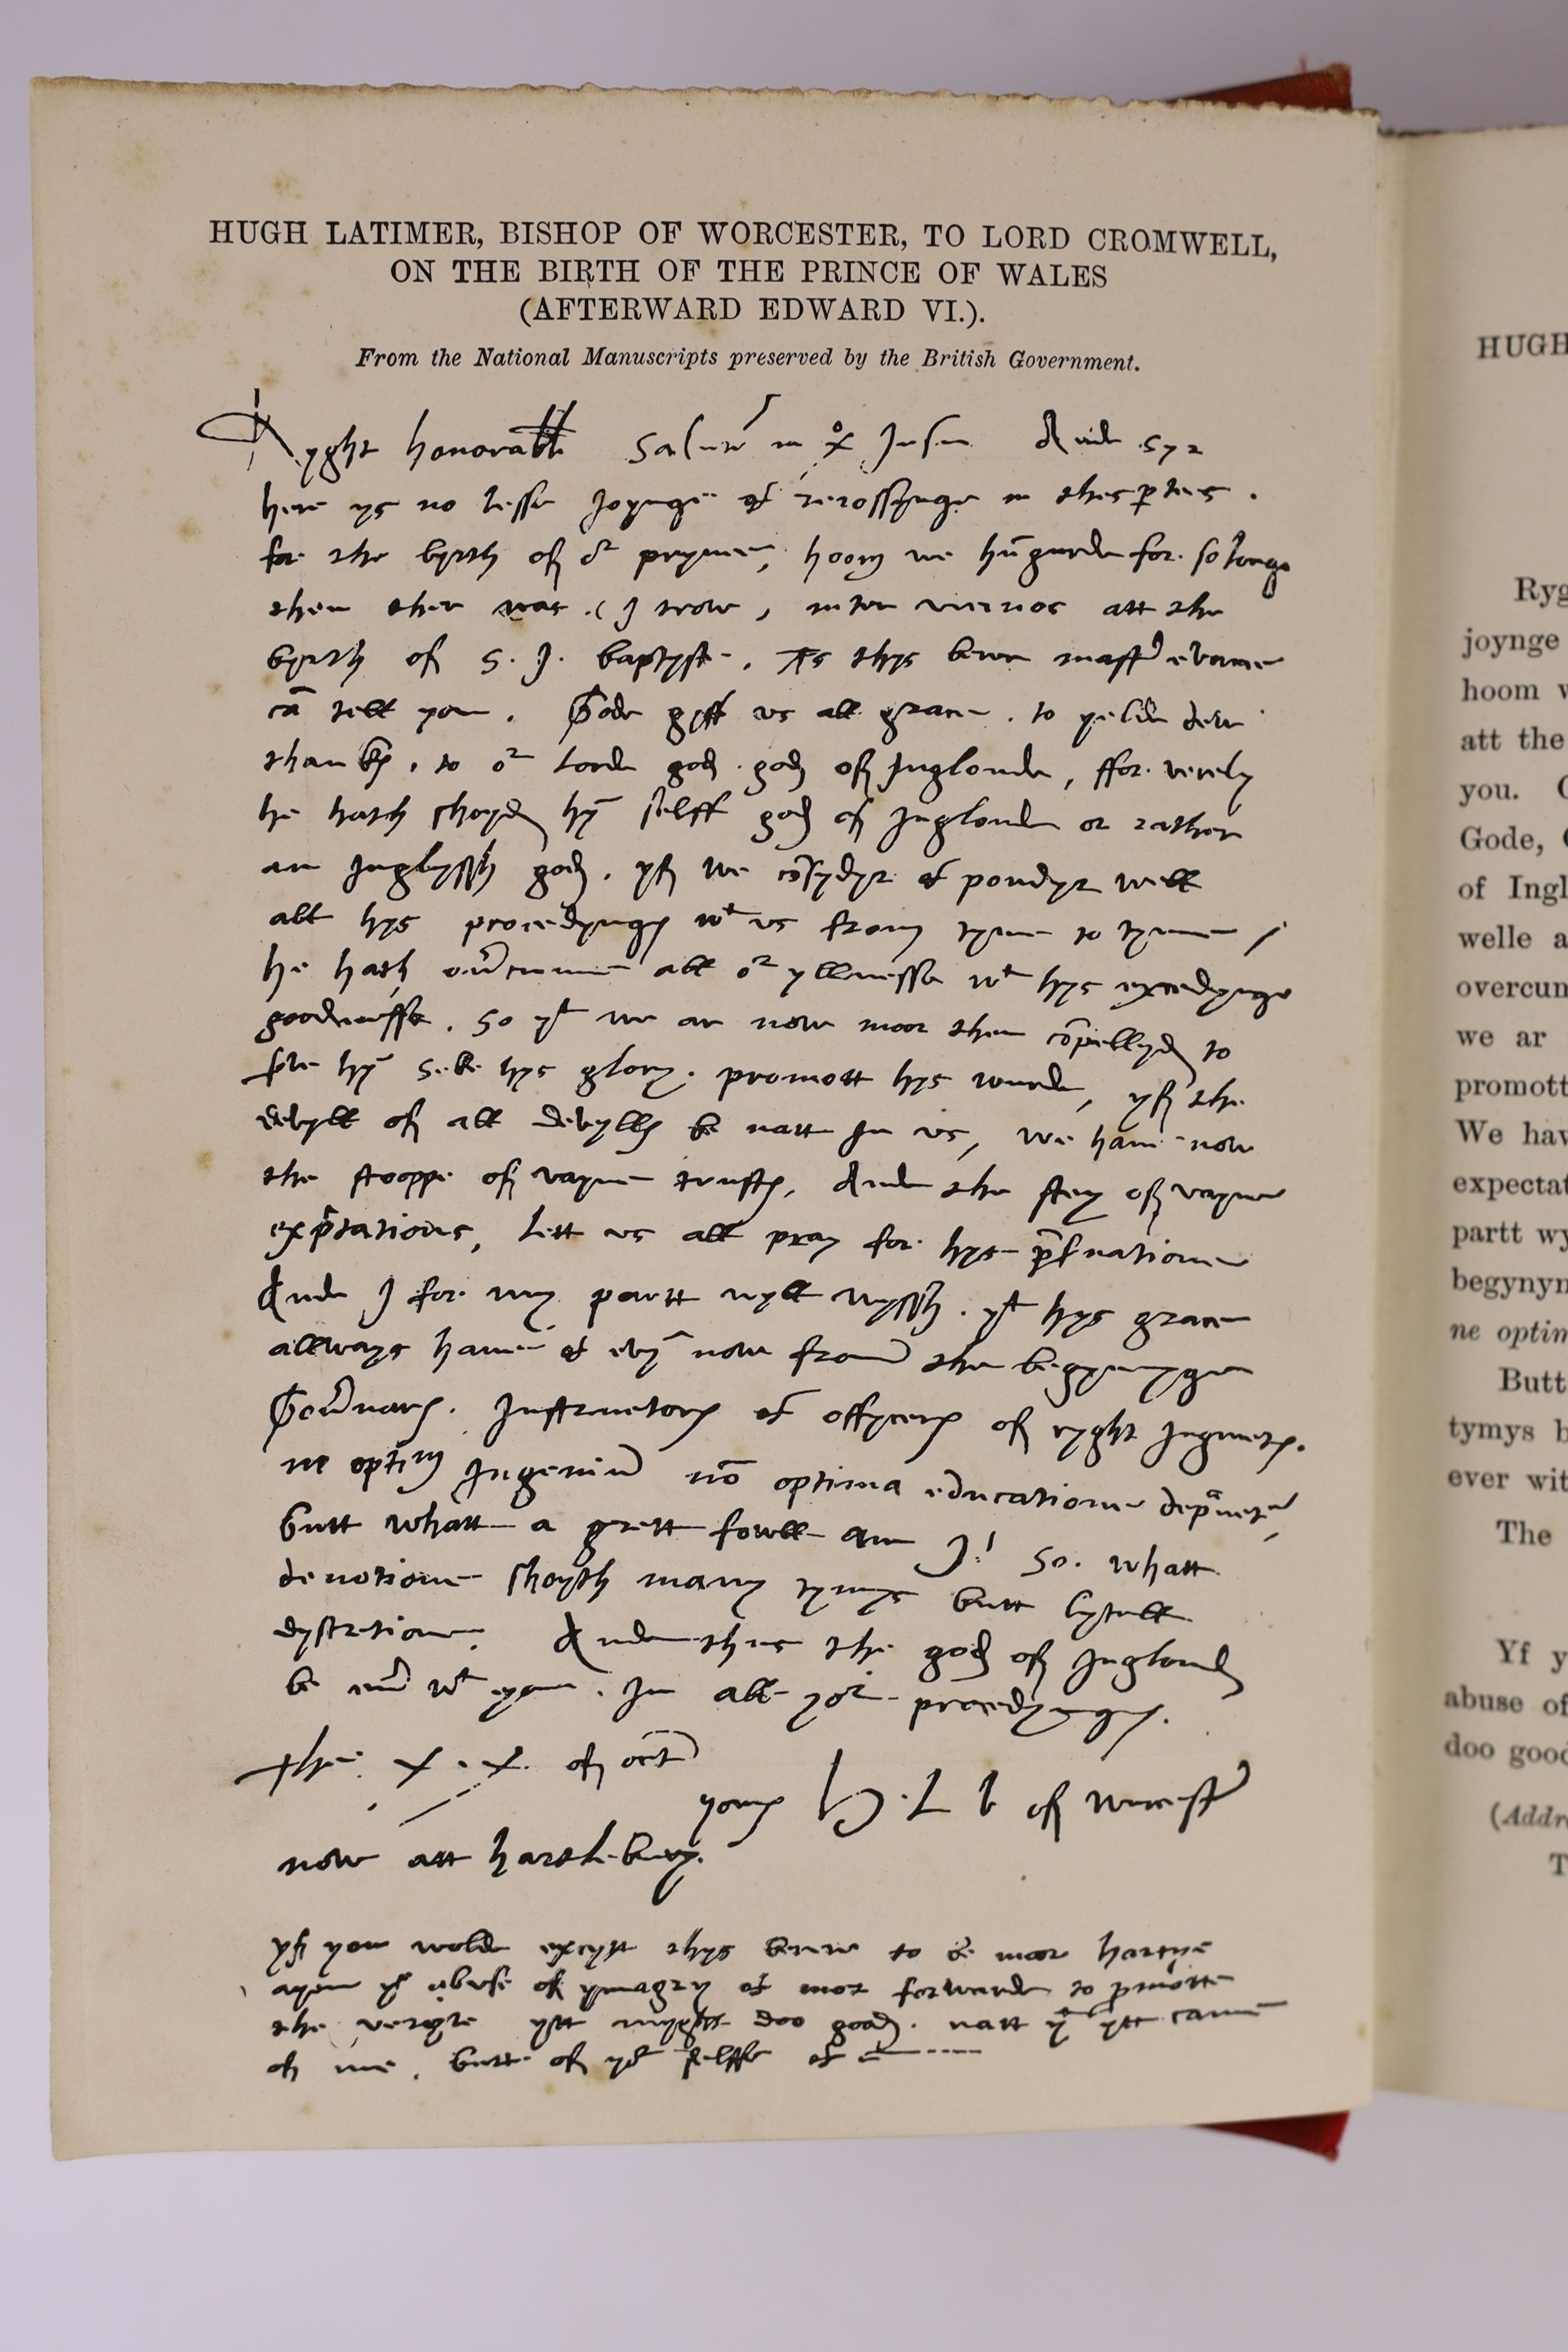 HUGH LATIMER, BISHOP OF WORCESTER, TO LORD CROMWELL,
ON THE BIRTH OF THE PRINCE OF WALES
(AFTERWARD EDWARD VI.).
From the National Manuscripts preserved by the British Government.
Ryght honorable Salutem in Jesu And syr
here ys no lesse Joynge & in thes ptees .
for the byrth of or prynce, hoom we hūgurde for so longe
then ther was (I trow, inter vicinos att the
byrth of S. J. baptyste . As thys berer mastr evance
cā tell you . Gode gyff us all grace . to yelde dew
thanks . to or lorde god . god of Inglonde, ffor verely
he hath shoyd hȳ selff god of Inglonde or rather
an Inglyssh god . yf we cōsydyr & pondyr well
all hys procedyngs wt us from tyme to tyme /
he hath ovrcumme all or yllnesse wt hys excedynge
goodnesse . So yt we ar now moor then cōpellyd to
hȳ seke hys glory . promott hys wurde, yf the
devyll of all devylls be natt in us, we have now
the stooppe of vayne trusts, And the stey of vayne
expectations, lett us all pray for hys pservatione
And I for my partt wyll wyssh . yt hys grace
allways have & evyn now from the begynynge
Govrnars . Instructors & offycers of ryght Jugmets .
ne optimum Ingenium nō optima educatione depravetur
butt whatt a grett fowll am I! So . whatt
devotione shoyth many tymys butt lytell
dyscretione . And thus the god of Inglond
be ever wt you . In all yor procedyngs .
The . x . x . of octr
yours H. L. B of wurcestr
now att hartlebury .
yf you wolde excyte thys berer to be moor hartye
ayen ye abuse of ymagry & mor forwarde to pmotte
the veryte ytt myght doo good . natt yt ytt came
of me . butt of yor selffe &
HUGH
Ryg
joynge
hoom w
att the
you.
Gode,
of Ingl
welle a
overcum
we ar
promott
We hav
expectat
partt wy
begynyn
ne optin
Butt
tymys b
ever wit
The
Yf y
abuse of
doo good
(Addre
T